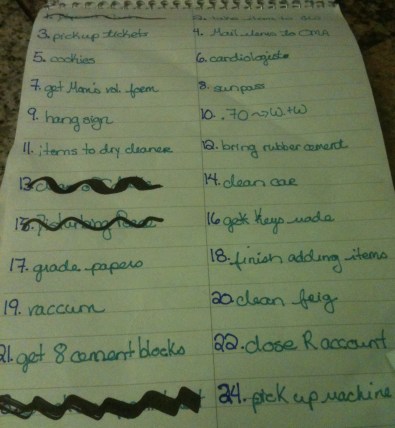 3. pickup tickets
4. Mail items to OMA
5. cookies
6. cardiologist
7. get Mom's vol form
8. sunpass
9. hang sign
10. .70 → W+W
11. items to dry cleaner
12. bring rubber cement
13.
14. clean car
15.
16 get keys made
17. grade papers
18. finish adding items
19. vaccum
20. clean frig
21. get 8 cement blocks
22. close R account
24. pick up machine